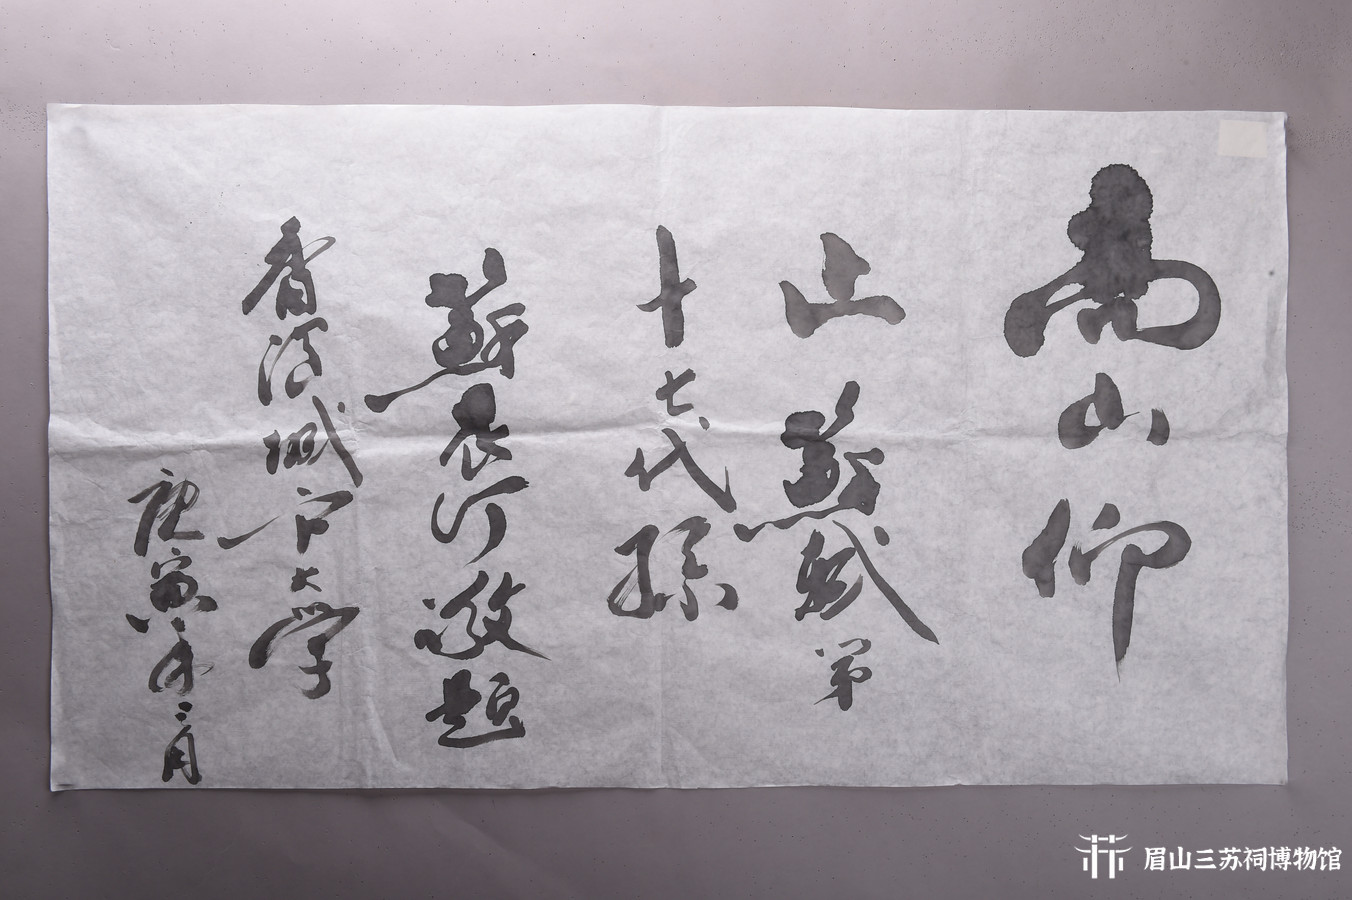 高山仰
止 蘇軾第
十七代孫
蘇 敬題
香港城市大学
庚寅年二月
眉山三苏祠博物馆